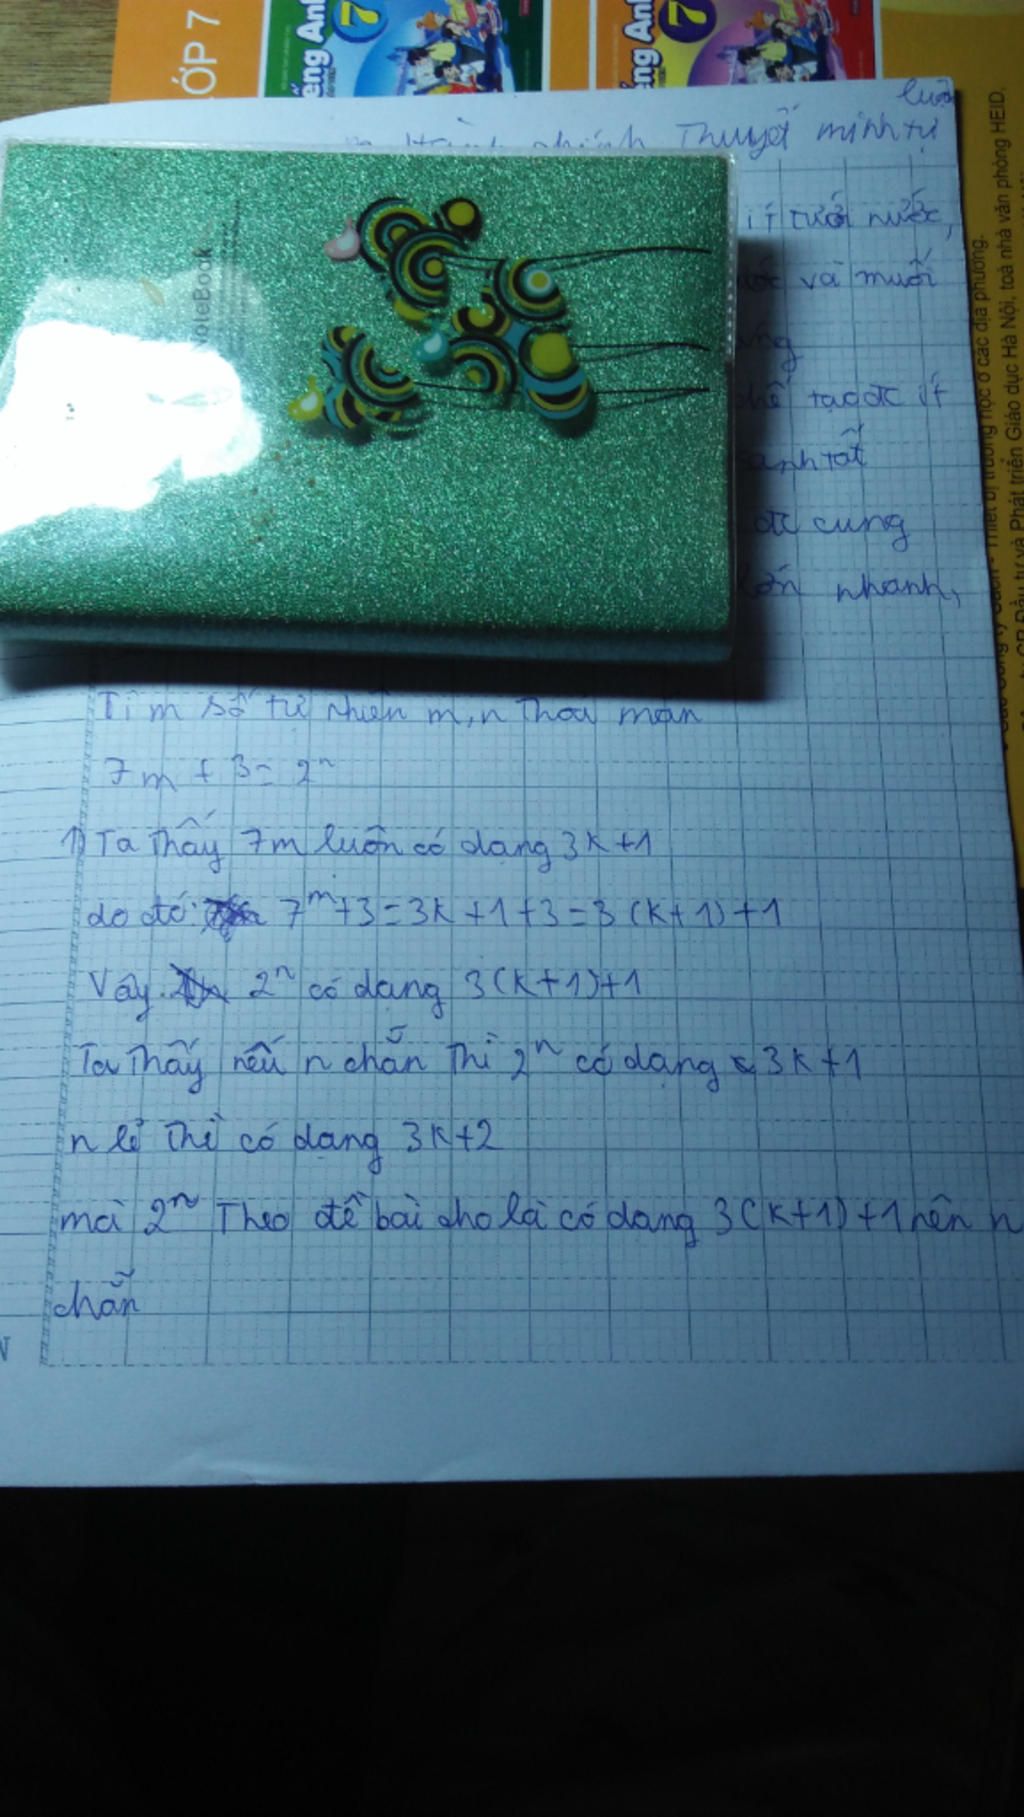 ỚP 7
ếng Anh 7
ếng Anh 7
luôn
Thuyết minh tự
ít tưới nước,
và muối
tạo đc ít
đc cung
nhanh,
NoteBook
Tìm số tự nhiên m, n thoả mãn
7m + 3 = 2ⁿ
1) Ta thấy 7m luôn có dạng 3k+1
do đó: 7ᵐ+3=3k+1+3=3(k+1)+1
Vậy 2ⁿ có dạng 3(k+1)+1
Ta thấy nếu n chẵn thì 2ⁿ có dạng 3k+1
n lẻ thì có dạng 3k+2
mà 2ⁿ Theo đề bài cho là có dạng 3(k+1)+1 nên n
chẵn
học ở các địa phương.
CP Đầu tư và Phát triển Giáo dục Hà Nội, toà nhà văn phòng HEID,